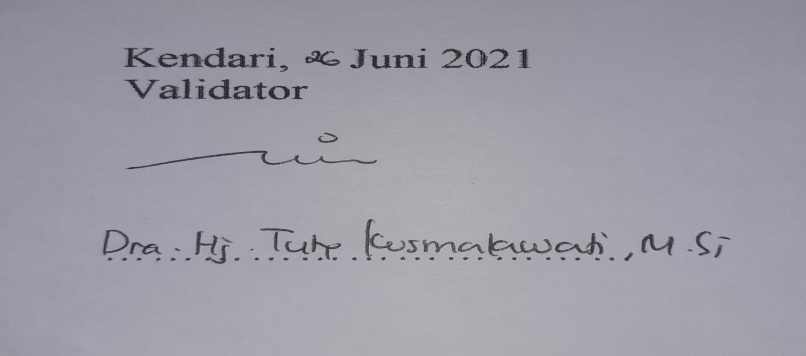 Kendari, 26 Juni 2021
Validator
Dra. Hj. Tuty Kusmalawati, M.Si